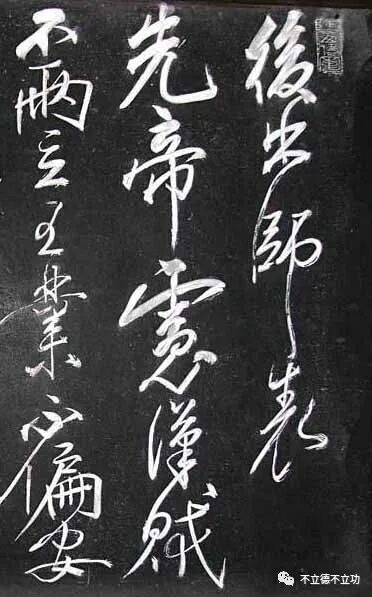 後出師表
先帝慮漢賊
不兩立王業不偏安
不立德不立功